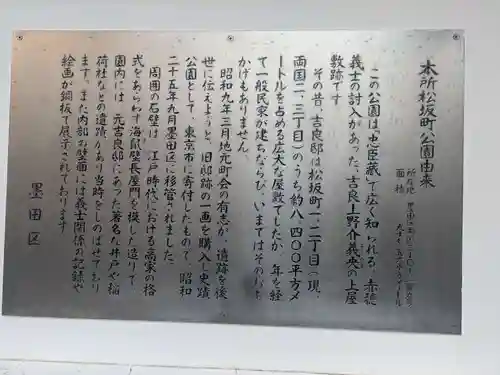 本所松坂町公園由来
所在地
面積
この公園は「忠臣蔵」で広く知られる、赤穂
義士の討入があった、吉良上野介義央の上屋
敷跡です。
その昔、吉良邸は松坂町一、二丁目（現、
両国二、三丁目）のうち約八、四〇〇平方メ
ートルを占める広大な屋敷でしたが、年を経
て一般民家が建ちならび、いまではそのおも
かげもありません。
昭和九年三月地元町会の有志が、遺跡を後
世に伝えようと、旧邸跡の一画を購入し史蹟
公園として、東京市に寄付したもので、昭和
二十五年九月墨田区に移管されました。
周囲の石壁は、江戸時代における高家の格
式をあらわす海鼠壁長屋門を模した造りで
園内には、元吉良邸にあった著名な井戸や稲
荷社などの遺跡があり当時をしのばせており
ます。また内部の壁面には義士関係の記録や
絵画が銅板で展示されております。
墨田区